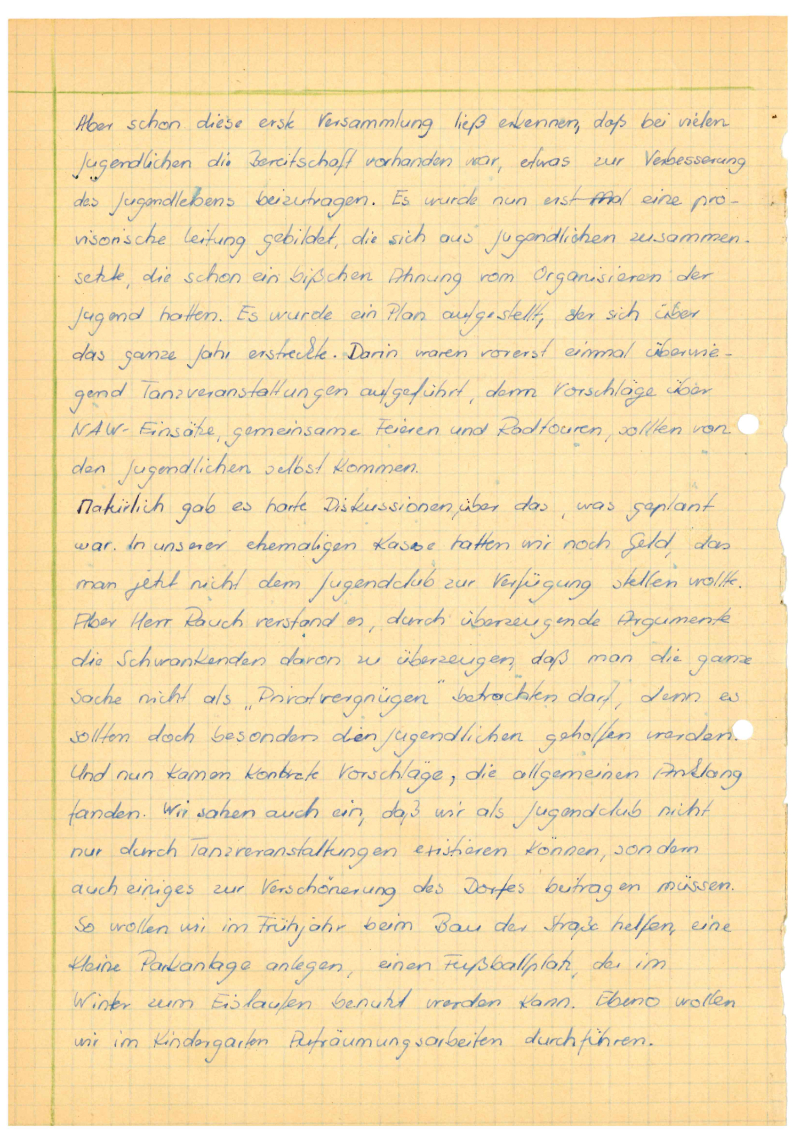 Aber schon diese erste Versammlung ließ erkennen, daß bei vielen
Jugendlichen die Bereitschaft vorhanden war, etwas zur Verbesserung
des Jugendlebens beizutragen. Es wurde nun erst mal eine pro-
visorische Leitung gebildet, die sich aus Jugendlichen zusammen-
setzte, die schon ein bißchen Ahnung vom Organisieren der
Jugend hatten. Es wurde ein Plan aufgestellt, der sich über
das ganze Jahr erstreckte. Darin waren vorerst einmal überwie-
gend Tanzveranstaltungen aufgeführt, denn Vorschläge über
NAW-Einsätze, gemeinsame Feieren und Radtouren, sollten von
den Jugendlichen selbst kommen.
Natürlich gab es harte Diskussionen, über das, was geplant
war. In unserer ehemaligen Kasse hatten wir noch Geld, das
man jetzt nicht dem Jugendclub zur Verfügung stellen wollte.
Aber Herr Rauch verstand es, durch überzeugende Argumente
die Schwankenden davon zu überzeugen, daß man die ganze
Sache nicht als „Privatvergnügen" betrachten darf, denn es
sollten doch besonders den Jugendlichen geholfen werden.
Und nun kamen konkrete Vorschläge, die allgemeinen Anklang
fanden. Wir sahen auch ein, daß wir als Jugendclub nicht
nur durch Tanzveranstaltungen existieren können, sondern
auch einiges zur Verschönerung des Dorfes beitragen müssen.
So wollen wir im Frühjahr beim Bau der Straße helfen, eine
kleine Parkanlage anlegen, einen Fußballplatz, der im
Winter zum Eislaufen benutzt werden kann. Ebenso wollen
wir im Kindergarten Aufräumungsarbeiten durchführen.